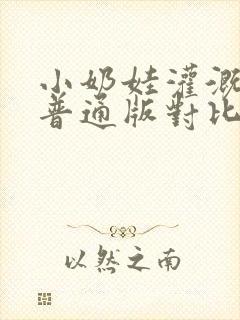 小奶娃灌溉
普通版對比
以然之南